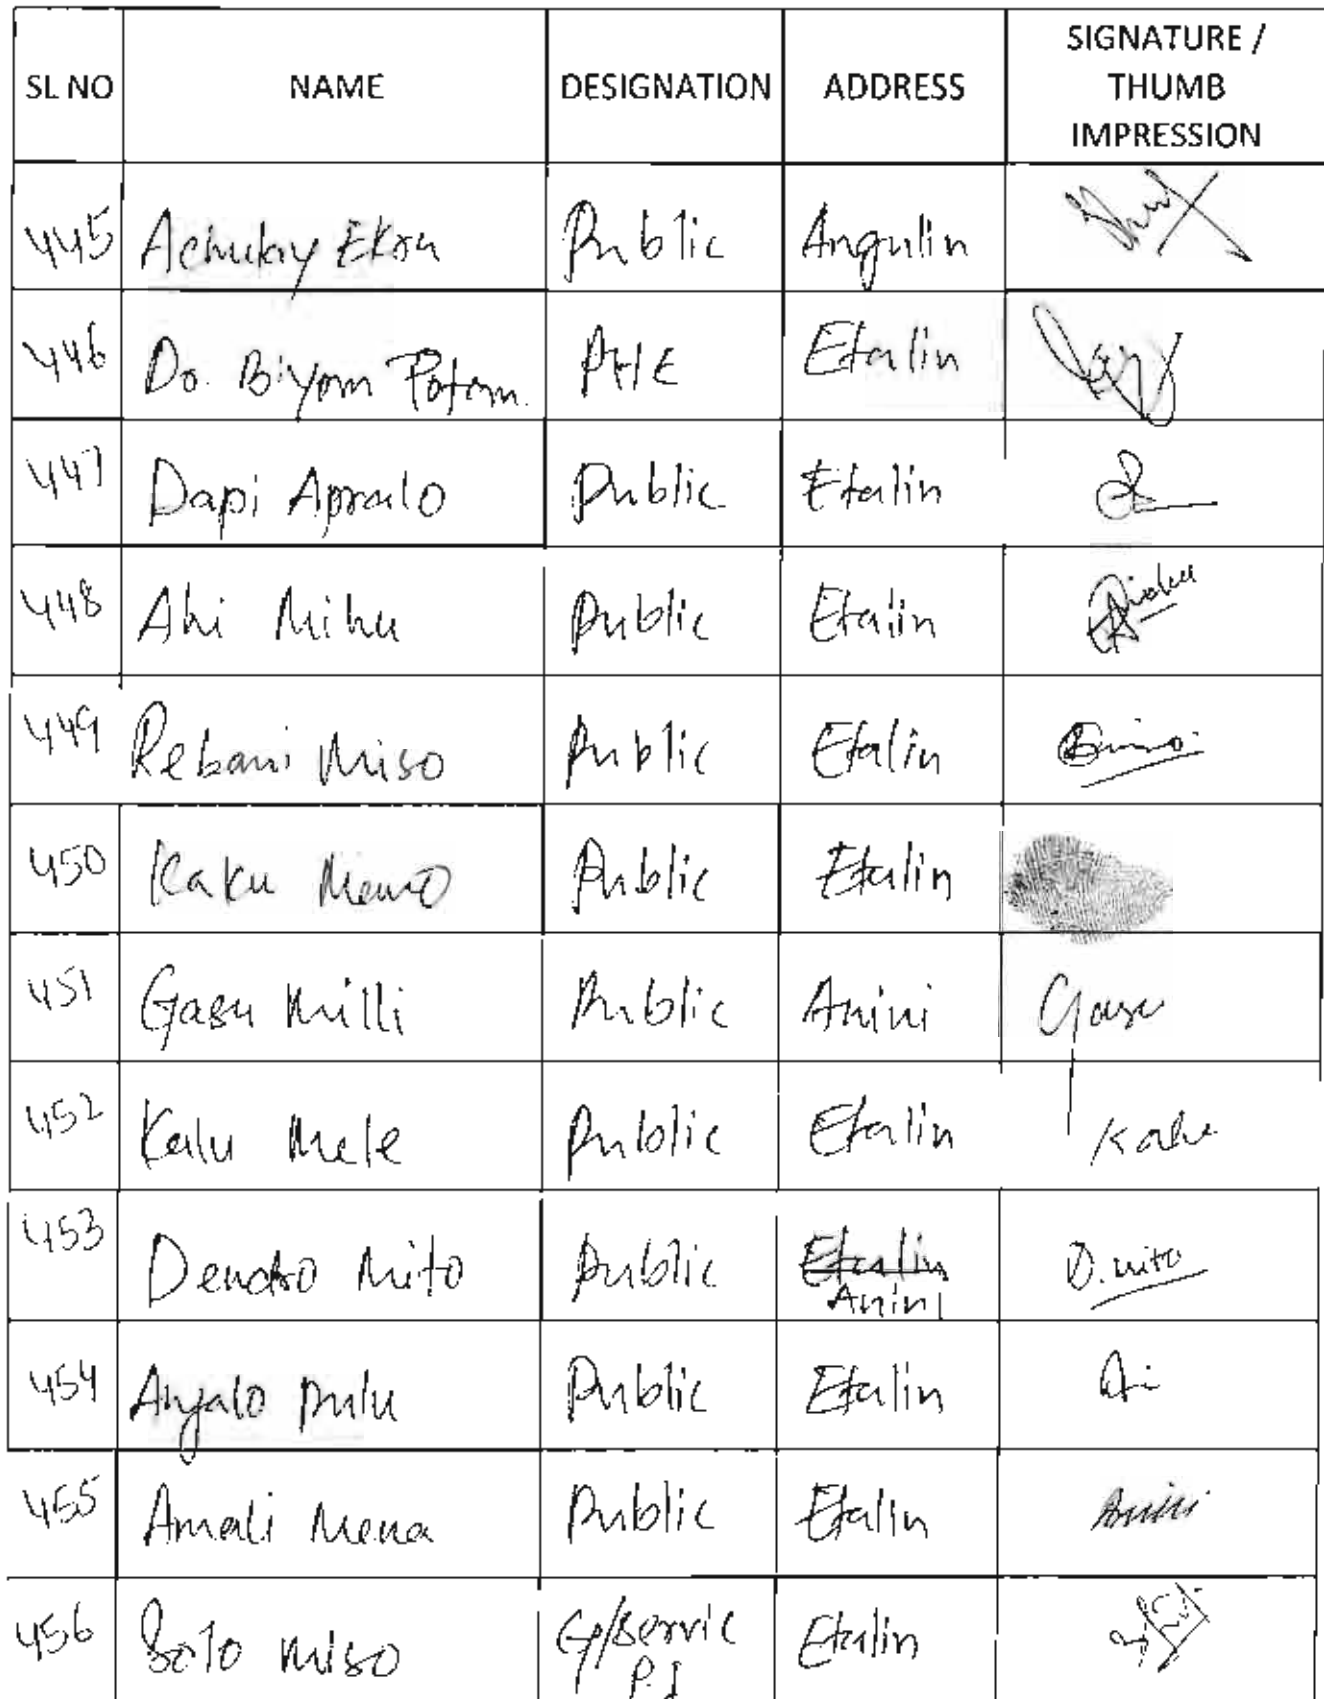 SL NO NAME DESIGNATION ADDRESS SIGNATURE / THUMB IMPRESSION
445 Public Angulin
446 Do. Biyom Potom. PHE Etalin
447 Dapi Apralo Public Etalin
448 Ahi Mihu Public Etalin
449 Rebani Miso Public Etalin
450 Kaku Meno Public Etalin
451 Gasu Milli Public Anini Gasu
452 Kalu Mele Public Etalin Kalu
453 Dendro Mito Public Etalin Anini D. mito
454 Public Etalin
455 Amali Mena Public Etalin
456 Solo Miso Etalin